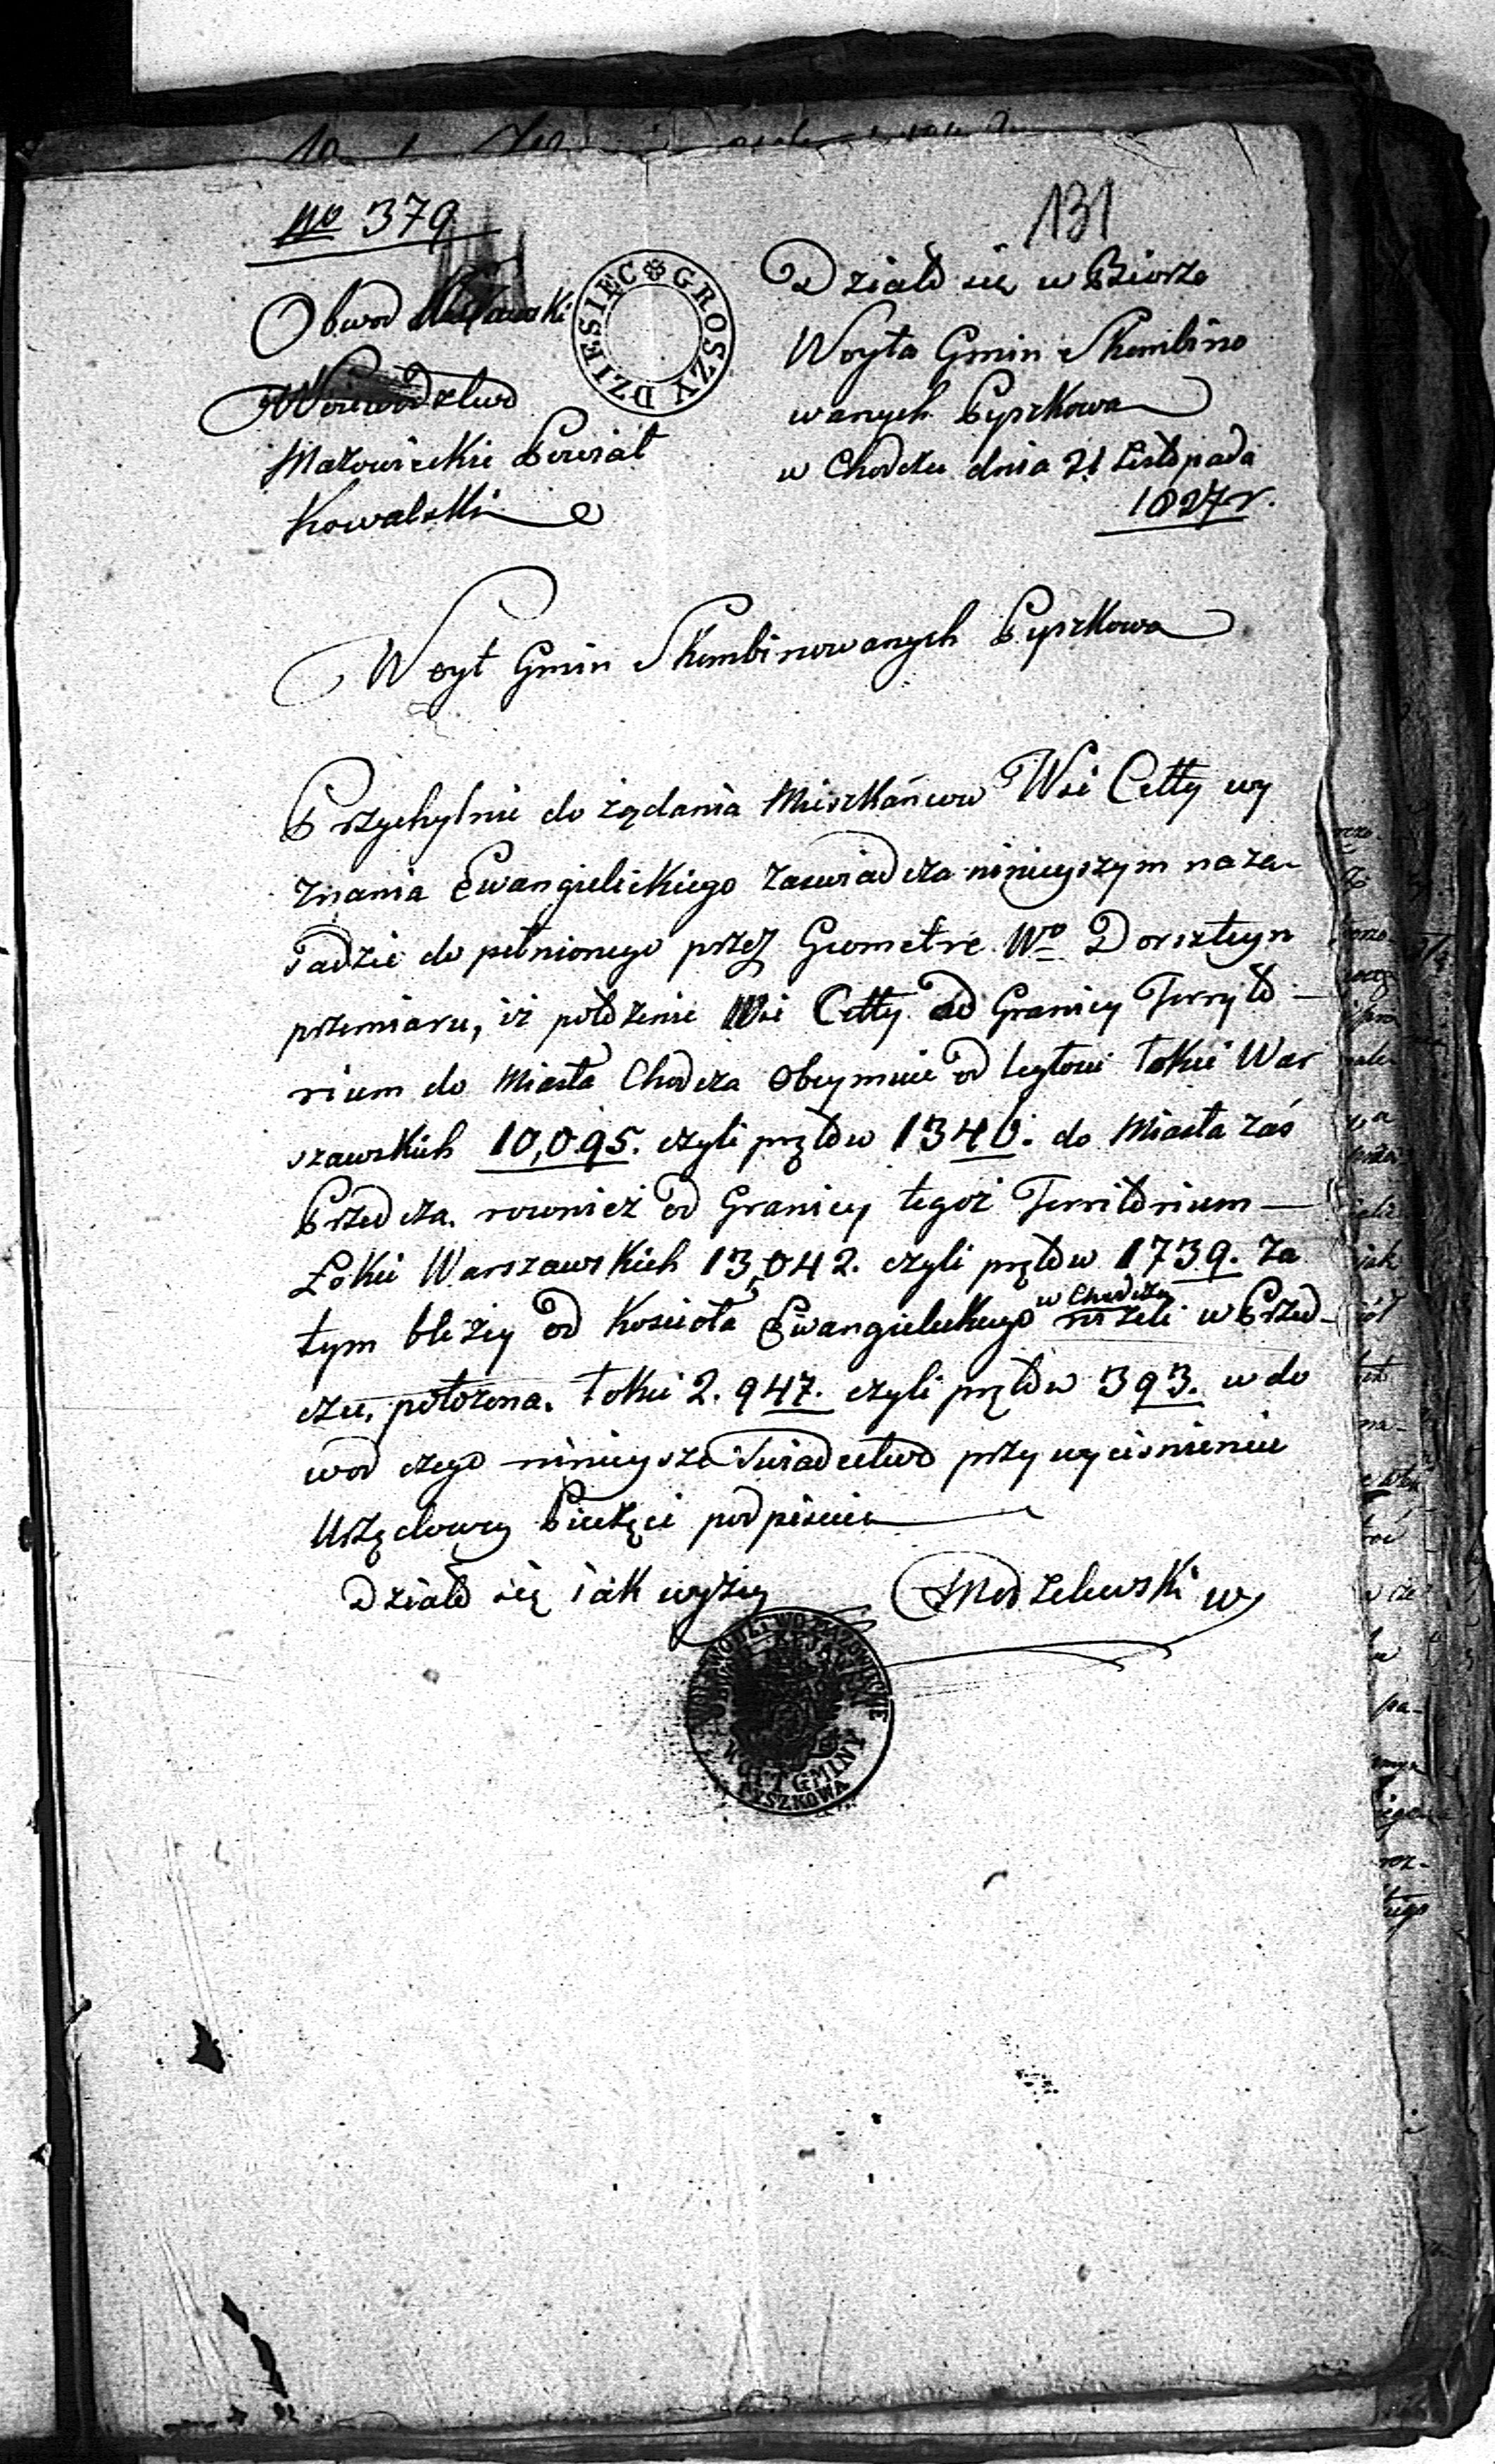 No 379
131
Obwod Kujawski
Woiewodztwo
Mazowieckie Powiat
Kowalski
DZIESIEC GROSZY
Działo się w Biorze
Woyta Gmin Skombino
wanych Pyszkowa
w Chodczu dnia 21 Listopada
1827 r.
Woyt Gmin Skombinowanych Pyszkowa
Przychylnie do żądania Mieszkańcow Wsi Cetty wy
znania Ewangielickiego zaswiadcza ninieyszym na za-
sadzie do pełnionego przez Geometrę Wo Dorszteyn
przemiaru, iż położenie Wsi Cetty od Granicy Terryto-
rium do Miasta Chodcza Obeymuie od ległosci łokci War
szawskich 10,095. czyli prętow 1346. do Miasta zaś
Przedcza. rownież od Granicy tegoż Territorium —
Łokci Warszawskich 13,042. czyli prętow 1739. Za
tym bliżey od Koscioła Ewangielickiego w Chodczu niżeli w Przed-
czu, położona. łokci 2.947. czyli prętow 393. w do
wod czego ninieysze Swiadectwo przy wycisnieniu
Urzędowey Pieczęci podpisuie
Działo się iak wyżey
Modzelewski w
WOIEWODZTWO MAZOWIECKIE
WOYT GMINY
PYSZKOWA